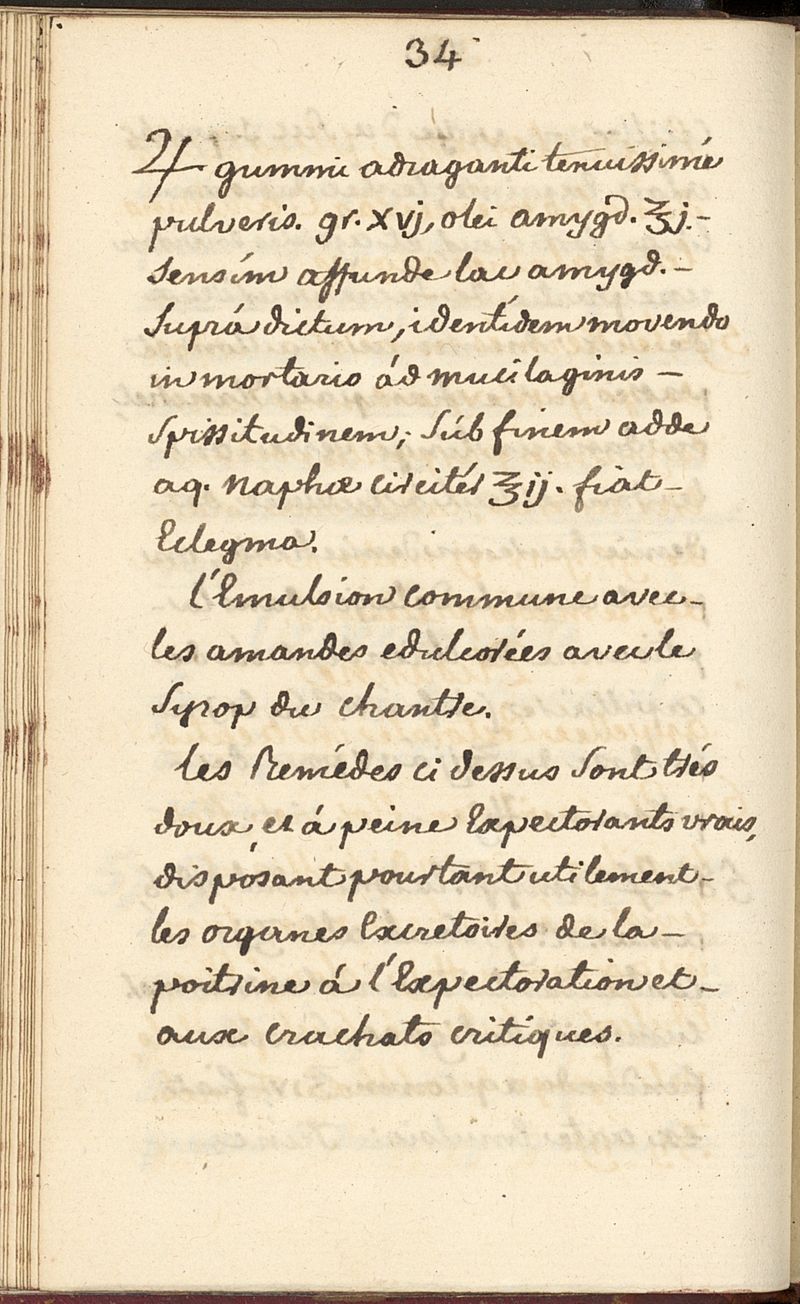 34
♃ gummi adraganti tenuissimé
pulveris. gr. xvj, olei amygd. ℥j.-
Sensím affunde lac amygd.-
Suprá dictum, identídem movendo
in mortario ád mucilaginis-
Spissitudinem; Súb finem adde
aq. naphæ circitér ℥ij. fiat-
Eclegma.
l'Emulsion commune avec-
les amandes edulcorées avec le
Syrop du chantre.
les Remédes ci dessus Sont trés
doux, et á peine Expectorants vrais,
disposant pourtant utilement-
les organes Excretoires de la-
poitrine á l'Expectoration et-
aux crachats critiques.